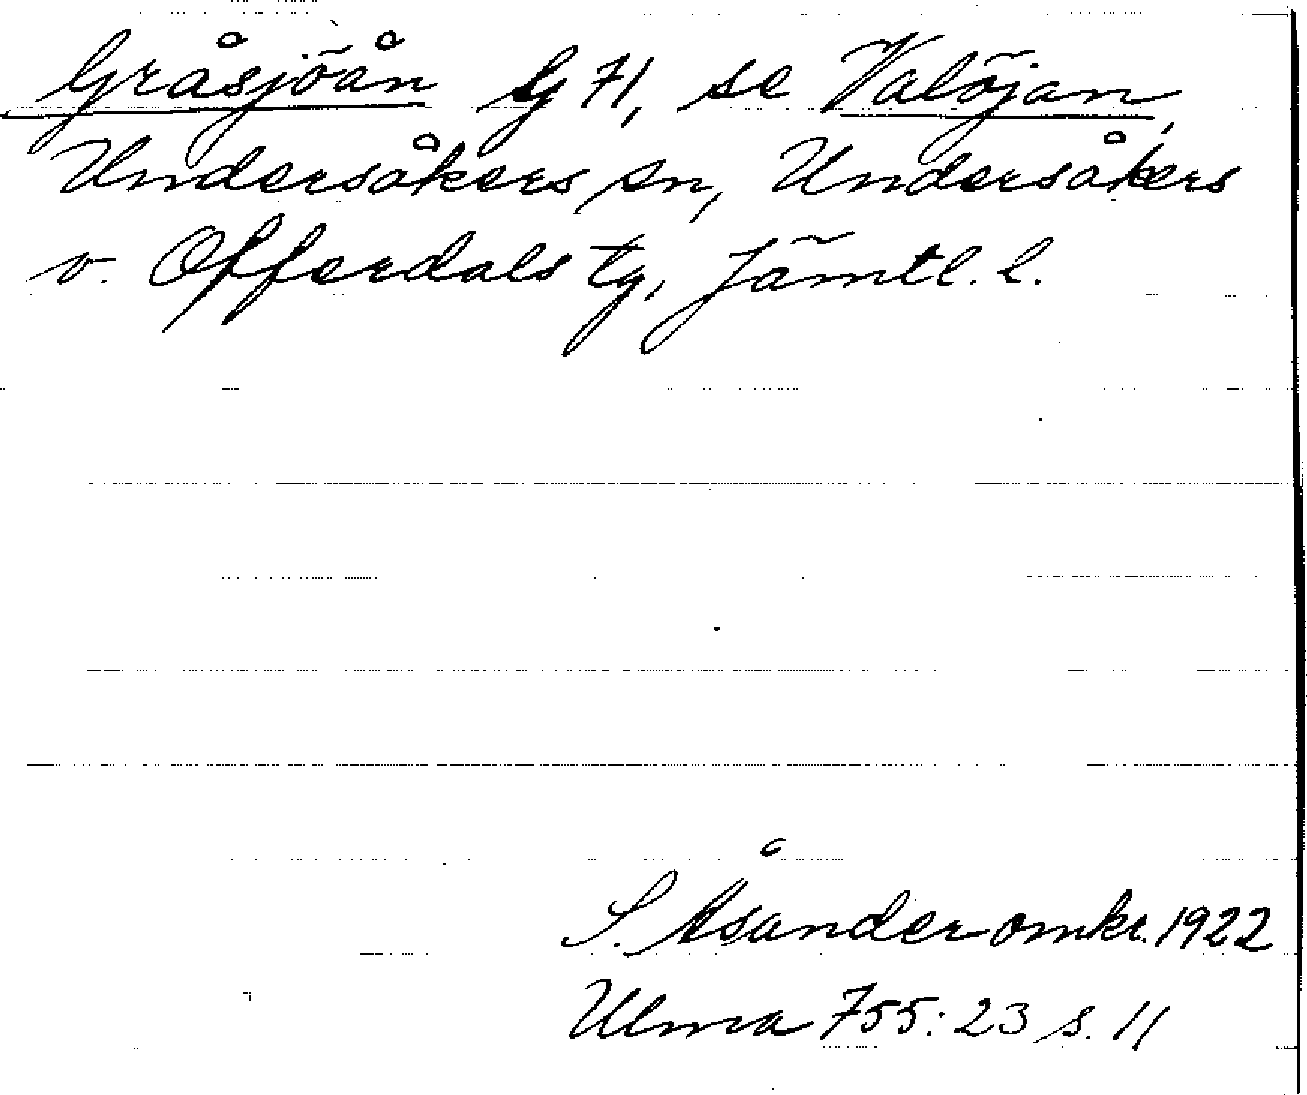 Gråsjöån G 71, se Valöjan,
Undersåkers sn, Undersåkers
o. Offerdals tg, Jämtl. l.
S. Åsander omkr. 1922
Ulma 755:23 s. 11